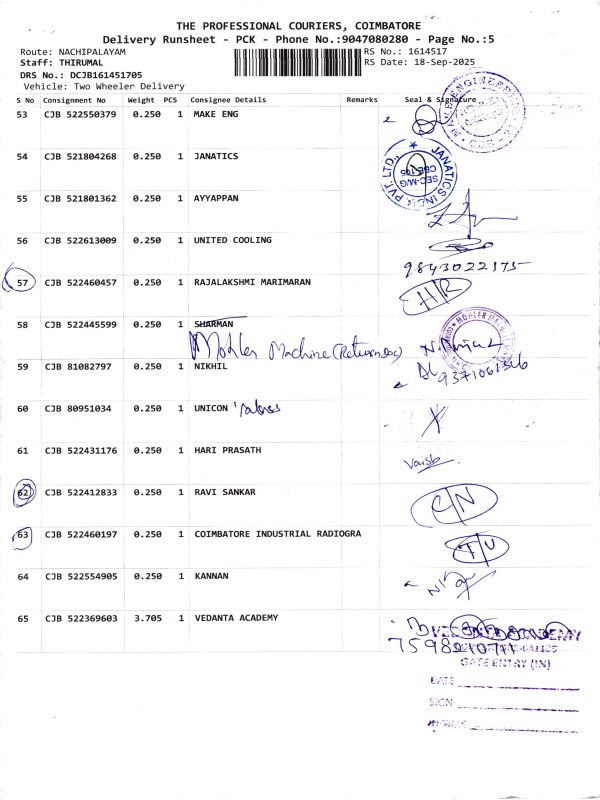 THE PROFESSIONAL COURIERS, COIMBATORE
Delivery Runsheet - PCK - Phone No.:9047080280 - Page No.:5
Route: NACHIPALAYAM RS No.: 1614517
Staff: THIRUMAL RS Date: 18-Sep-2025
DRS No.: DCJB161451705
Vehicle: Two Wheeler Delivery
S No Consignment No Weight PCS Consignee Details Remarks Seal & Signature
53 CJB 522550379 0.250 1 MAKE ENG
54 CJB 521804268 0.250 1 JANATICS
JANATICS INDIA PVT. LTD.,
55 CJB 521801362 0.250 1 AYYAPPAN
56 CJB 522613009 0.250 1 UNITED COOLING
9843022375
57 CJB 522460457 0.250 1 RAJALAKSHMI MARIMARAN
H/R
58 CJB 522445599 0.250 1 SHARMAN
Mohler Machine (Return Doc)
59 CJB 81082797 0.250 1 NIKHIL
60 CJB 80951034 0.250 1 UNICON
61 CJB 522431176 0.250 1 HARI PRASATH
62 CJB 522412833 0.250 1 RAVI SANKAR
C/N
63 CJB 522460197 0.250 1 COIMBATORE INDUSTRIAL RADIOGRA
64 CJB 522554905 0.250 1 KANNAN
65 CJB 522369603 3.705 1 VEDANTA ACADEMY
GATE ENTRY (IN)
DATE
SIGN